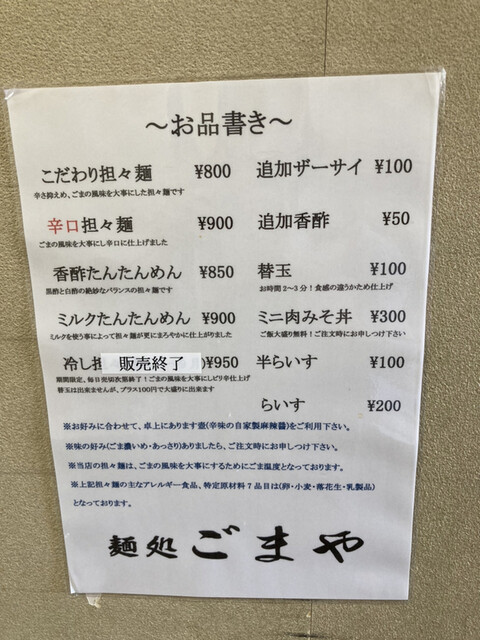 ～お品書き～
こだわり担々麺 ¥800
辛さ抑えめ、ごまの風味を大事にした担々麺です
辛口担々麺 ¥900
ごまの風味を大事にし辛口に仕上げました
香酢たんたんめん ¥850
黒酢と白酢の絶妙なバランスの担々麺です
ミルクたんたんめん ¥900
ミルクを使う事によって担々麺が更にまろやかに仕上がりました
冷し 販売終了 )¥950
期間限定、毎日売切次第終了！ごまの風味を大事にしビリ辛仕上げ
替玉は出来ませんが、プラス100円で大盛りに出来ます
追加ザーサイ ¥100
追加香酢 ¥50
替玉 ¥100
お時間2～3分！食感の違うかため仕上げ
ミニ肉みそ丼 ¥300
ご飯大盛り無料！ご注文時にお申しつけ下さい
半らいす ¥100
らいす ¥200
※お好みに合わせて、卓上にあります壺(辛味の自家製麻辣醤)をご利用下さい。
※味の好み(ごま濃いめ・あっさり)ありましたら、ご注文時にお申しつけ下さい。
※当店の担々麺は、ごまの風味を大事にするためにごま温度となっております。
※上記担々麺の主なアレルギー食品、特定原材料7品目は(卵・小麦・落花生・乳製品)
となっております。
麺処 ごまや